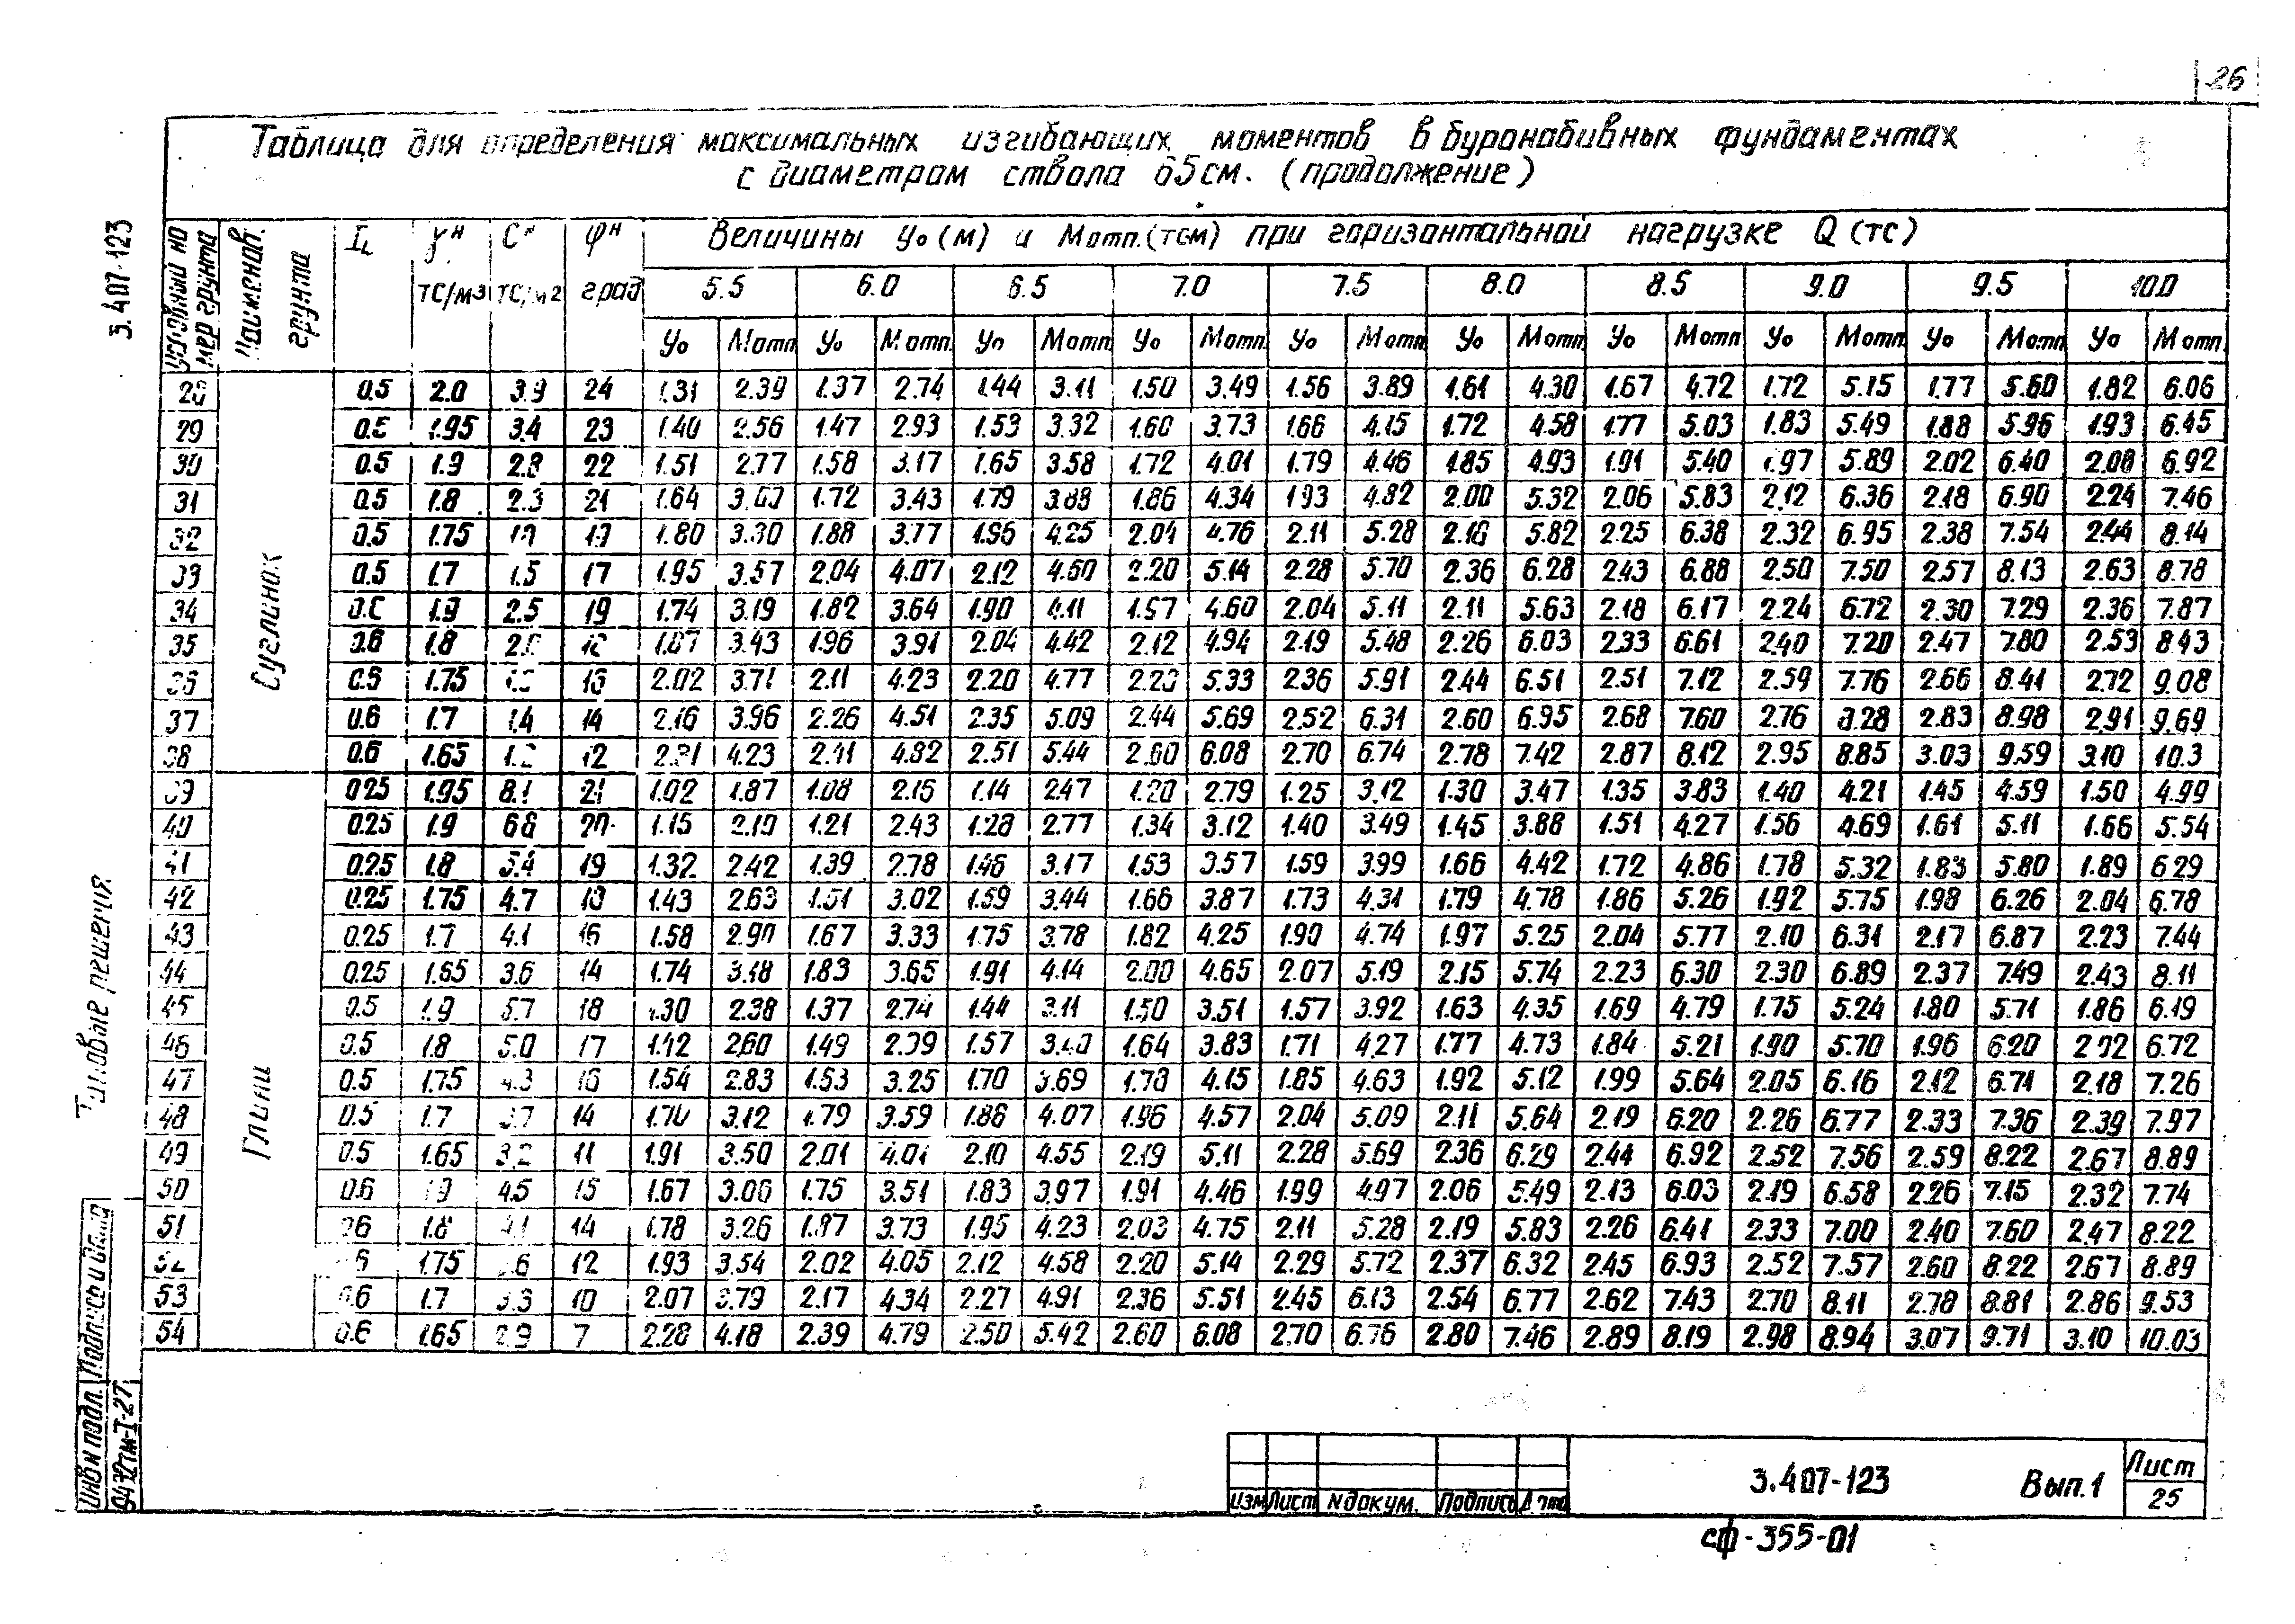 26
Таблица для определения максимальных изгибающих моментов в буронабивных фундаментах
с диаметром ствола 65см. (продолжение)
3.407-123
Условный номер грунта Наименов. грунта IL γн тс/м3 Сн тс/м2 φн град Величины yо (м) и Мотп.(тсм) при горизонтальной нагрузке Q (тс)
5.5 6.0 6.5 7.0 7.5 8.0 8.5 9.0 9.5 10.0
yо Мотп yо Мотп. yо Мотп yо Мотп. yо Мотп yо Мотп yо Мотп yо Мотп yо Мотп yо Мотп.
Суглинок
28 0.5 2.0 3.9 24 1.31 2.39 1.37 2.74 1.44 3.11 1.50 3.49 1.56 3.89 1.61 4.30 1.67 4.72 1.72 5.15 1.77 5.60 1.82 6.06
29 0.5 1.95 3.4 23 1.40 2.56 1.47 2.93 1.53 3.32 1.60 3.73 1.66 4.15 1.72 4.58 1.77 5.03 1.83 5.49 1.88 5.96 1.93 6.45
30 0.5 1.9 2.8 22 1.51 2.77 1.58 3.17 1.65 3.58 1.72 4.01 1.79 4.46 1.85 4.93 1.91 5.40 1.97 5.89 2.02 6.40 2.08 6.92
31 0.5 1.8 2.3 21 1.64 3.00 1.72 3.43 1.79 3.88 1.86 4.34 1.93 4.82 2.00 5.32 2.06 5.83 2.12 6.36 2.18 6.90 2.24 7.46
32 0.5 1.75 19 1.80 3.30 1.88 3.77 1.96 4.25 2.04 4.76 2.11 5.28 2.18 5.82 2.25 6.38 2.32 6.95 2.38 7.54 2.44 8.14
33 0.5 1.7 1.5 17 1.95 3.57 2.04 4.07 2.12 4.60 2.20 5.14 2.28 5.70 2.36 6.28 2.43 6.88 2.50 7.50 2.57 8.13 2.63 8.78
34 1.9 2.5 19 1.74 3.19 1.82 3.64 1.90 4.11 1.97 4.60 2.04 5.11 2.11 5.63 2.18 6.17 2.24 6.72 2.30 7.29 2.36 7.87
35 0.6 1.8 1.87 3.43 1.96 3.91 2.04 4.42 2.12 4.94 2.19 5.48 2.26 6.03 2.33 6.61 2.40 7.20 2.47 7.80 2.53 8.43
36 0.6 1.75 16 2.02 3.71 2.11 4.23 2.20 4.77 2.28 5.33 2.36 5.91 2.44 6.51 2.51 7.12 2.59 7.76 2.66 8.41 2.72 9.08
37 0.6 1.7 1.4 14 2.16 3.96 2.26 4.51 2.35 5.09 2.44 5.69 2.52 6.31 2.60 6.95 2.68 7.60 2.76 8.28 2.83 8.98 2.91 9.69
38 0.6 1.65 12 2.31 4.23 2.41 4.82 2.51 5.44 2.60 6.08 2.70 6.74 2.78 7.42 2.87 8.12 2.95 8.85 3.03 9.59 3.10 10.3
Глины
39 0.25 1.95 8.1 21 1.02 1.87 1.08 2.16 1.14 2.47 1.20 2.79 1.25 3.12 1.30 3.47 1.35 3.83 1.40 4.21 1.45 4.59 1.50 4.99
40 0.25 1.9 6.8 20 1.15 2.10 1.21 2.43 1.28 2.77 1.34 3.12 1.40 3.49 1.45 3.88 1.51 4.27 1.56 4.69 1.61 5.11 1.66 5.54
41 0.25 1.8 5.4 19 1.32 2.42 1.39 2.78 1.46 3.17 1.53 3.57 1.59 3.99 1.66 4.42 1.72 4.86 1.78 5.32 1.83 5.80 1.89 6.29
42 0.25 1.75 4.7 18 1.43 2.63 1.51 3.02 1.59 3.44 1.66 3.87 1.73 4.31 1.79 4.78 1.86 5.26 1.92 5.75 1.98 6.26 2.04 6.78
43 0.25 1.7 4.1 16 1.58 2.90 1.67 3.33 1.75 3.78 1.82 4.25 1.90 4.74 1.97 5.25 2.04 5.77 2.10 6.31 2.17 6.87 2.23 7.44
44 0.25 1.65 3.6 14 1.74 3.18 1.83 3.65 1.91 4.14 2.00 4.65 2.07 5.19 2.15 5.74 2.23 6.30 2.30 6.89 2.37 7.49 2.43 8.11
45 0.5 1.9 5.7 18 1.30 2.38 1.37 2.74 1.44 3.11 1.50 3.51 1.57 3.92 1.63 4.35 1.69 4.79 1.75 5.24 1.80 5.71 1.86 6.19
46 0.5 1.8 5.0 17 1.42 2.60 1.49 2.99 1.57 3.40 1.64 3.83 1.71 4.27 1.77 4.73 1.84 5.21 1.90 5.70 1.96 6.20 2.02 6.72
47 0.5 1.75 4.3 16 1.54 2.83 1.53 3.25 1.70 3.69 1.78 4.15 1.85 4.63 1.92 5.12 1.99 5.64 2.05 6.16 2.12 6.71 2.18 7.26
48 0.5 1.7 3.7 14 1.70 3.12 1.79 3.59 1.88 4.07 1.96 4.57 2.04 5.09 2.11 5.64 2.19 6.20 2.26 6.77 2.33 7.36 2.39 7.97
49 0.5 1.65 3.2 11 1.91 3.50 2.01 4.01 2.10 4.55 2.19 5.11 2.28 5.69 2.36 6.29 2.44 6.92 2.52 7.56 2.59 8.22 2.67 8.89
50 0.6 1.9 4.5 15 1.67 3.06 1.75 3.51 1.83 3.97 1.91 4.46 1.99 4.97 2.06 5.49 2.13 6.03 2.19 6.58 2.26 7.15 2.32 7.74
51 0.6 1.8 4.1 14 1.78 3.26 1.87 3.73 1.95 4.23 2.03 4.75 2.11 5.28 2.19 5.83 2.26 6.41 2.33 7.00 2.40 7.60 2.47 8.22
52 1.75 12 1.93 3.54 2.02 4.05 2.12 4.58 2.20 5.14 2.29 5.72 2.37 6.32 2.45 6.93 2.52 7.57 2.60 8.22 2.67 8.89
53 0.6 1.7 3.3 10 2.07 3.79 2.17 4.34 2.27 4.91 2.36 5.51 2.45 6.13 2.54 6.77 2.62 7.43 2.70 8.11 2.78 8.81 2.86 9.53
54 0.6 1.65 2.9 7 2.28 4.18 2.39 4.79 2.50 5.42 2.60 6.08 2.70 6.76 2.80 7.46 2.89 8.19 2.98 8.94 3.07 9.71 3.10 10.03
Типовые решения
Инв н подл. Подпись и дата
9432тм-I-27
Изм Лист N докум. Подпись Дата
3.407-123 Вып.1
Лист
25
сф-355-01